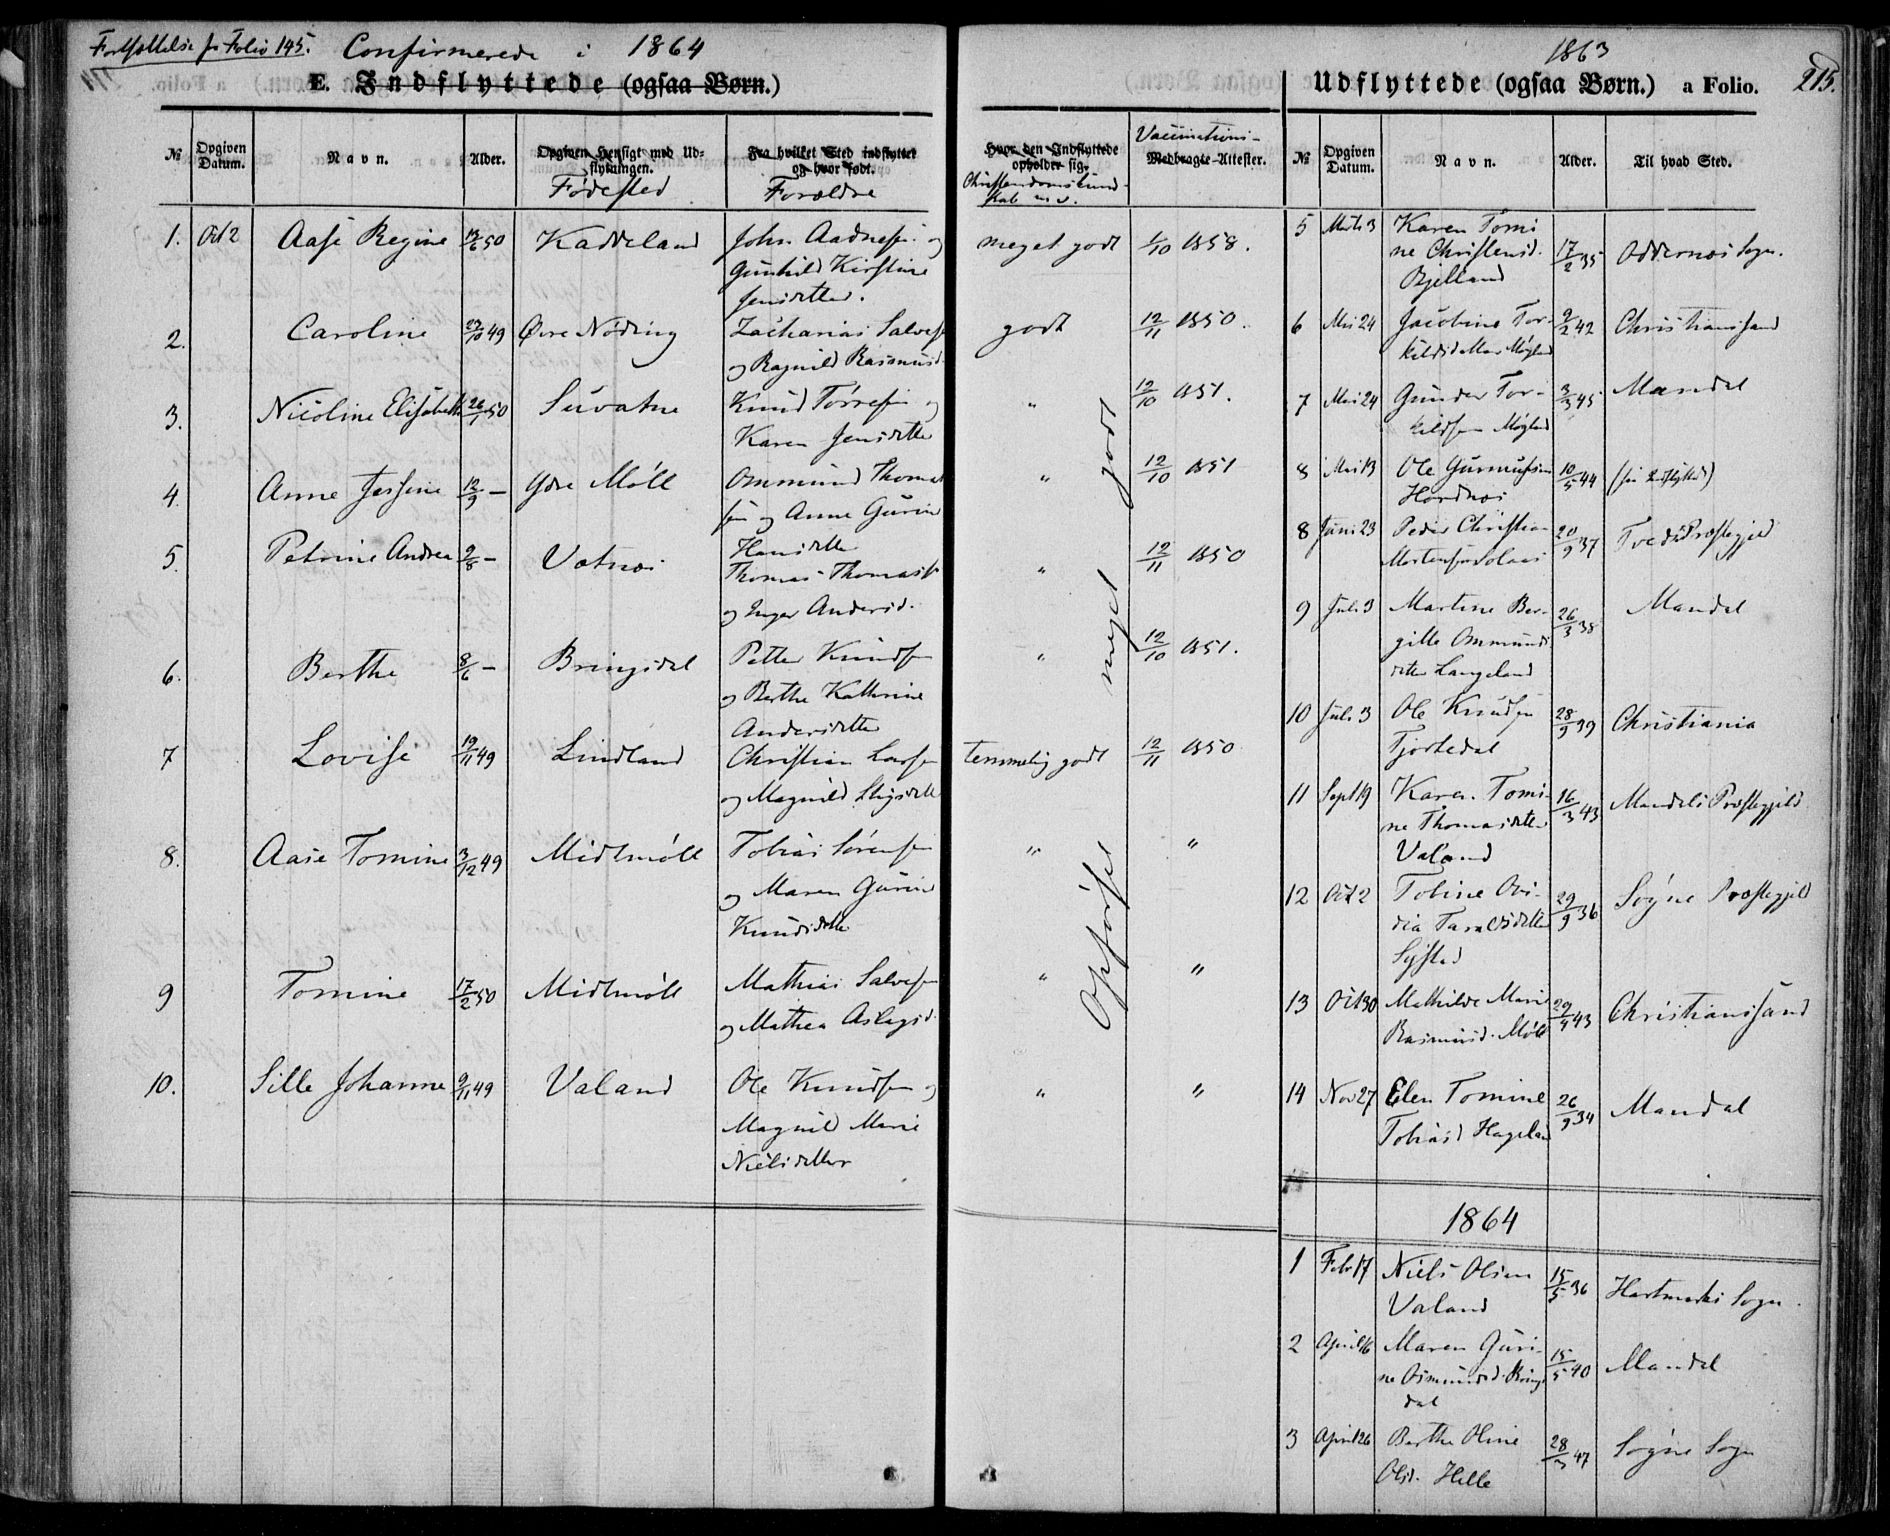 Fortsættelse fr Folio 145. Confirmerede i 1864
E. Indflyttede (ogsaa Børn.)
№ Opgiven Datum. Navn. Alder. Opgiven Hensigt med Udflytningen. Fra hvilket Sted indflyttet og hvor født.
Fødested Forældre
1. Oct 2 Aase Regine 13/6 50 Kaddeland John Aadnesen og
Gunhild Kirstine
Jensdatter.
2. Caroline 29/10 49 Øvre Nøding Zacharias Salvesen
og Ragnild Rasmusd.
3. Nicoline Elisabeth 26/1 50 Suvatne Knud Tørresen og
Karen Jensdatter
4. Anne Jessine 12/9 — Ydre Møll Ommund Thomas
sen og Anne Gurine
Hansdatter
5. Petrine Andrea 2/8 — Vatnøi Thomas Thomass.
og Inger Andersd.
6. Berthe 8/6 — Bringsdal Petter Knudsen
og Berthe Kathrine
Andersdatter
7 Lovise 19/11 49 Lindland Christian Larsen
og Magnild Stigsdatter
8. Aase Tomine 3/12 49 Midtmøll Tobias Sørensen
og Maren Gurine
Knudsdatter
9 Tomine 17/2 50 Midtmøll Mathias Salvesen
og Mathea Aslagsd.
10. Sille Johanne 9/11 49 Valand Ole Knudsen og
Magnild Marie
Nielsdatter
Hvor den Indflyttede opholder sig. Medbragte Attester.
Christendomskund- Vaccinations-
skab m. v.
meget godt 1/10 1858.
godt 12/11 1850.
" 12/10 1851.
" 12/10 1851
" 12/11 1850
" 12/10 1851.
temmelig godt 12/11 1850
" "
" "
" "
Opførsel meget godt
1863
Udflyttede (ogsaa Børn.) a Folio. 215.
№ Opgiven Datum. Navn. Alder. Til hvad Sted.
5 Mrts 3 Karen Tomi
ne Christensd. 17/2 35 Oddernes Sogn.
Bjelland
6 Mai 24 Jacobine Tor- 9/2 42 Christianssand
kildsd Møgland
7 Mai 24 Gunder Tor- 3/3 45 Mandal
kildsen Møgland
8 Mai 13 Ole Gunnufsen 10/5 44 (før Indflyttet)
8 Juni 23 Peder Christian 20/9 37 Tveds Præstegjeld
Mortensen
9 Juli 3 Martine Ber- 26/3 38 Mandal
gitte Ommunds
datter Langeland
10 Juli 3 Ole Knudsen 28/9 39 Christiania
11 Sept 19 Karen Tomi- 16/3 43 Mandals Præstegjeld
ne Thomasdatter
Valand
12 Oct 2 Tobine Ovi- 29/9 36 Søgne Præstegjeld
dia Taraldsdatter
13 Oct 30 Mathilde Marie 29/4 43 Christianssand
Rasmusd. Møll
14 Nov 27 Elen Tomine 26/9 34 Mandal
Tobiasd Hageland
1864
1 Febr 17 Niels Olsen 15/5 36 Hartmarks Sogn.
Valand
2 April 16 Maren Guri- 15/5 40 Mandal
ne Osmundsd. Brings
dal
3 April 26 Berthe Oline 28/3 47 Søgne Sogn
Olsd. Helle